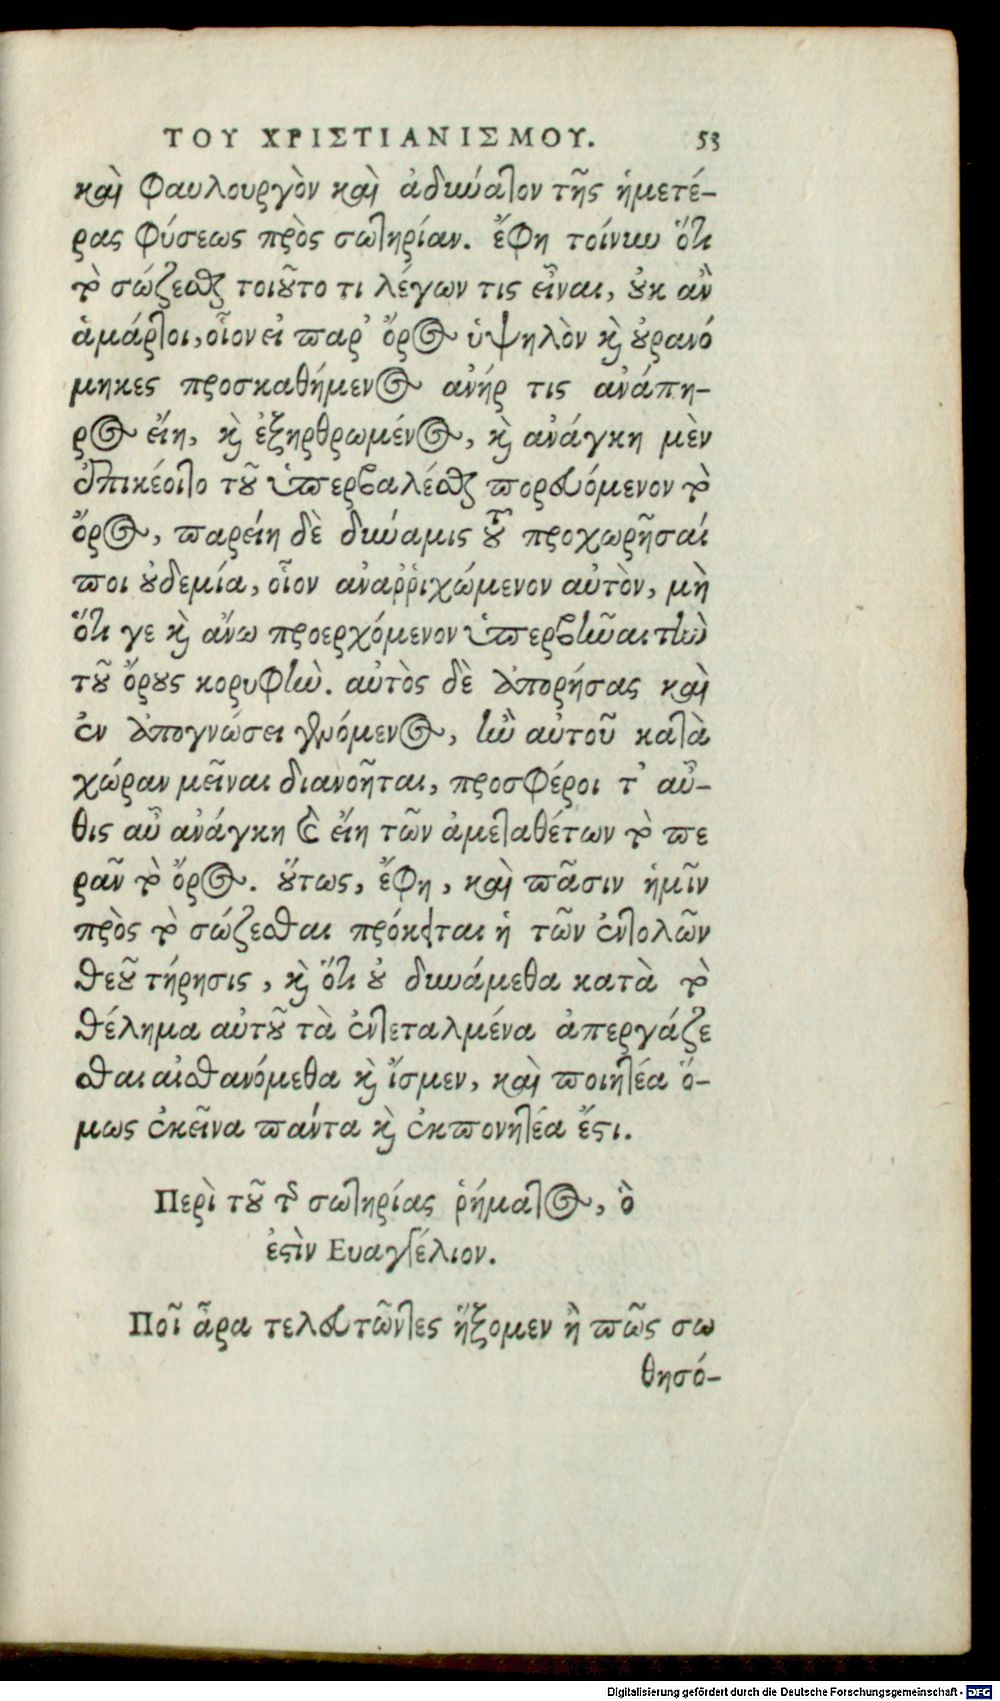 ΤΟΥ ΧΡΙΣΤΙΑΝΙΣΜΟΥ. 53
καὶ φαυλουργὸν καὶ ἀδυνάτον τῆς ἡμετέ-
ρας φύσεως πρὸς σωτηρίαν. ἔφη τοίνυν ὅτι
τὸ σώζεσθαι τοιοῦτο τι λέγων τις εἶναι, οὐκ ἂν
ἁμάρτοι, οἷον εἰ παρ᾽ ὄρος ὑψηλὸν καὶ οὐρανό
μηκες προσκαθήμενος ἀνήρ τις ἀνάπη-
ρος εἴη, καὶ ἐξηρθρωμένος, καὶ ἀνάγκη μὲν
ἐπικέοιτο τοῦ ὑπερβαλέσθαι πορευόμενον τὸ
ὄρος, παρείη δὲ δύναμις τοῦ προχωρῆσαί
ποι οὐδεμία, οἷον ἀναῤῥιχώμενον αὐτὸν, μὴ
ὅτι γε καὶ ἄνω προερχόμενον ὑπερβῆναι τὴν
τοῦ ὄρους κορυφήν. αὐτὸς δὲ ἀπορήσας καὶ
ἐν ἀπογνώσει γενόμενος, ἢν αὐτοῦ κατὰ
χώραν μεῖναι διανοῆται, προσφέροι τ᾽ αὖ-
θις αὖ ἀνάγκη καὶ εἴη τῶν ἀμεταθέτων τὸ πε
ρᾶν τὸ ὄρος. οὕτως, ἔφη, καὶ πᾶσιν ἡμῖν
πρὸς τὸ σώζεσθαι πρόκειται ἡ τῶν ἐντολῶν
θεοῦ τήρησις, καὶ ὅτι οὐ δυνάμεθα κατὰ τὸ
θέλημα αὐτοῦ τὰ ἐντεταλμένα ἀπεργάζε
σθαι αἰσθανόμεθα καὶ ἴσμεν, καὶ ποιητέα ὅ-
μως ἐκεῖνα πάντα καὶ ἐκπονητέα ἔστι.
Περὶ τοῦ τῆς σωτηρίας ῥήματος, ὅ
ἐστὶν Ευαγγέλιον.
Ποῖ ἆρα τελευτῶντες ἥξομεν ἢ πῶς σω
θησό-
Digitalisierung gefördert durch die Deutsche Forschungsgemeinschaft - DFG